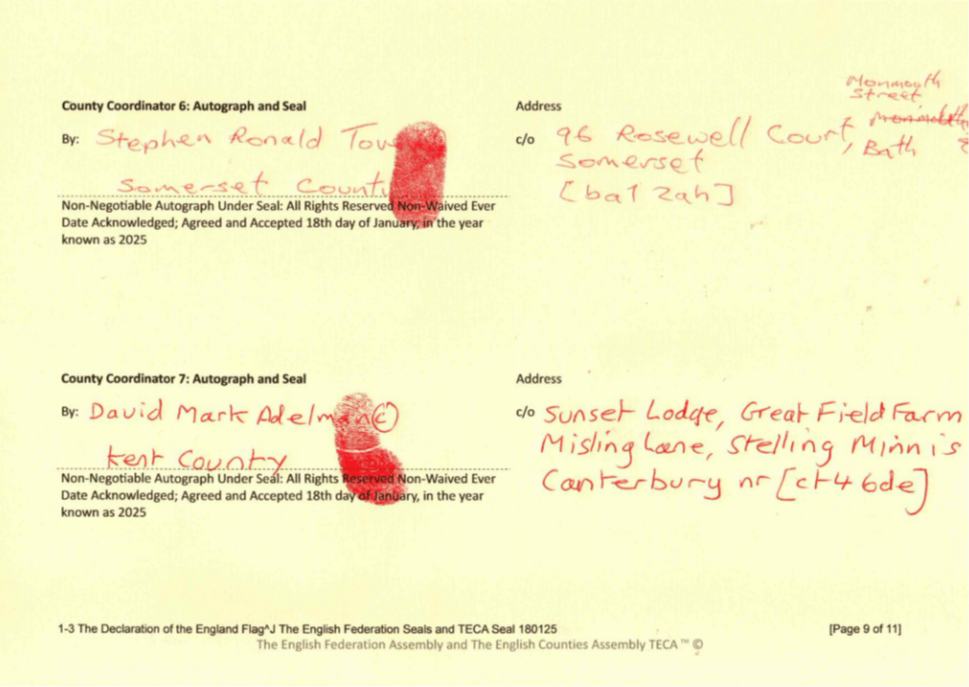 Monmouth
Street
County Coordinator 6: Autograph and Seal
Address
By: Stephen Ronald
c/o 96 Rosewell Court,
Bath
Somerset County
Somerset
[ba1 2ah]
Non-Negotiable Autograph Under Seal: All Rights Reserved Non-Waived Ever
Date Acknowledged; Agreed and Accepted 18th day of January, in the year
known as 2025
County Coordinator 7: Autograph and Seal
Address
By: David Mark Adelman©
c/o Sunset Lodge, Great Field Farm
Misling Lane, Stelling Minnis
Kent County
Canterbury nr [ct4 6de]
Non-Negotiable Autograph Under Seal: All Rights Reserved Non-Waived Ever
Date Acknowledged; Agreed and Accepted 18th day of January, in the year
known as 2025
1-3 The Declaration of the England Flag^J The English Federation Seals and TECA Seal 180125
[Page 9 of 11]
The English Federation Assembly and The English Counties Assembly TECA ™ ©